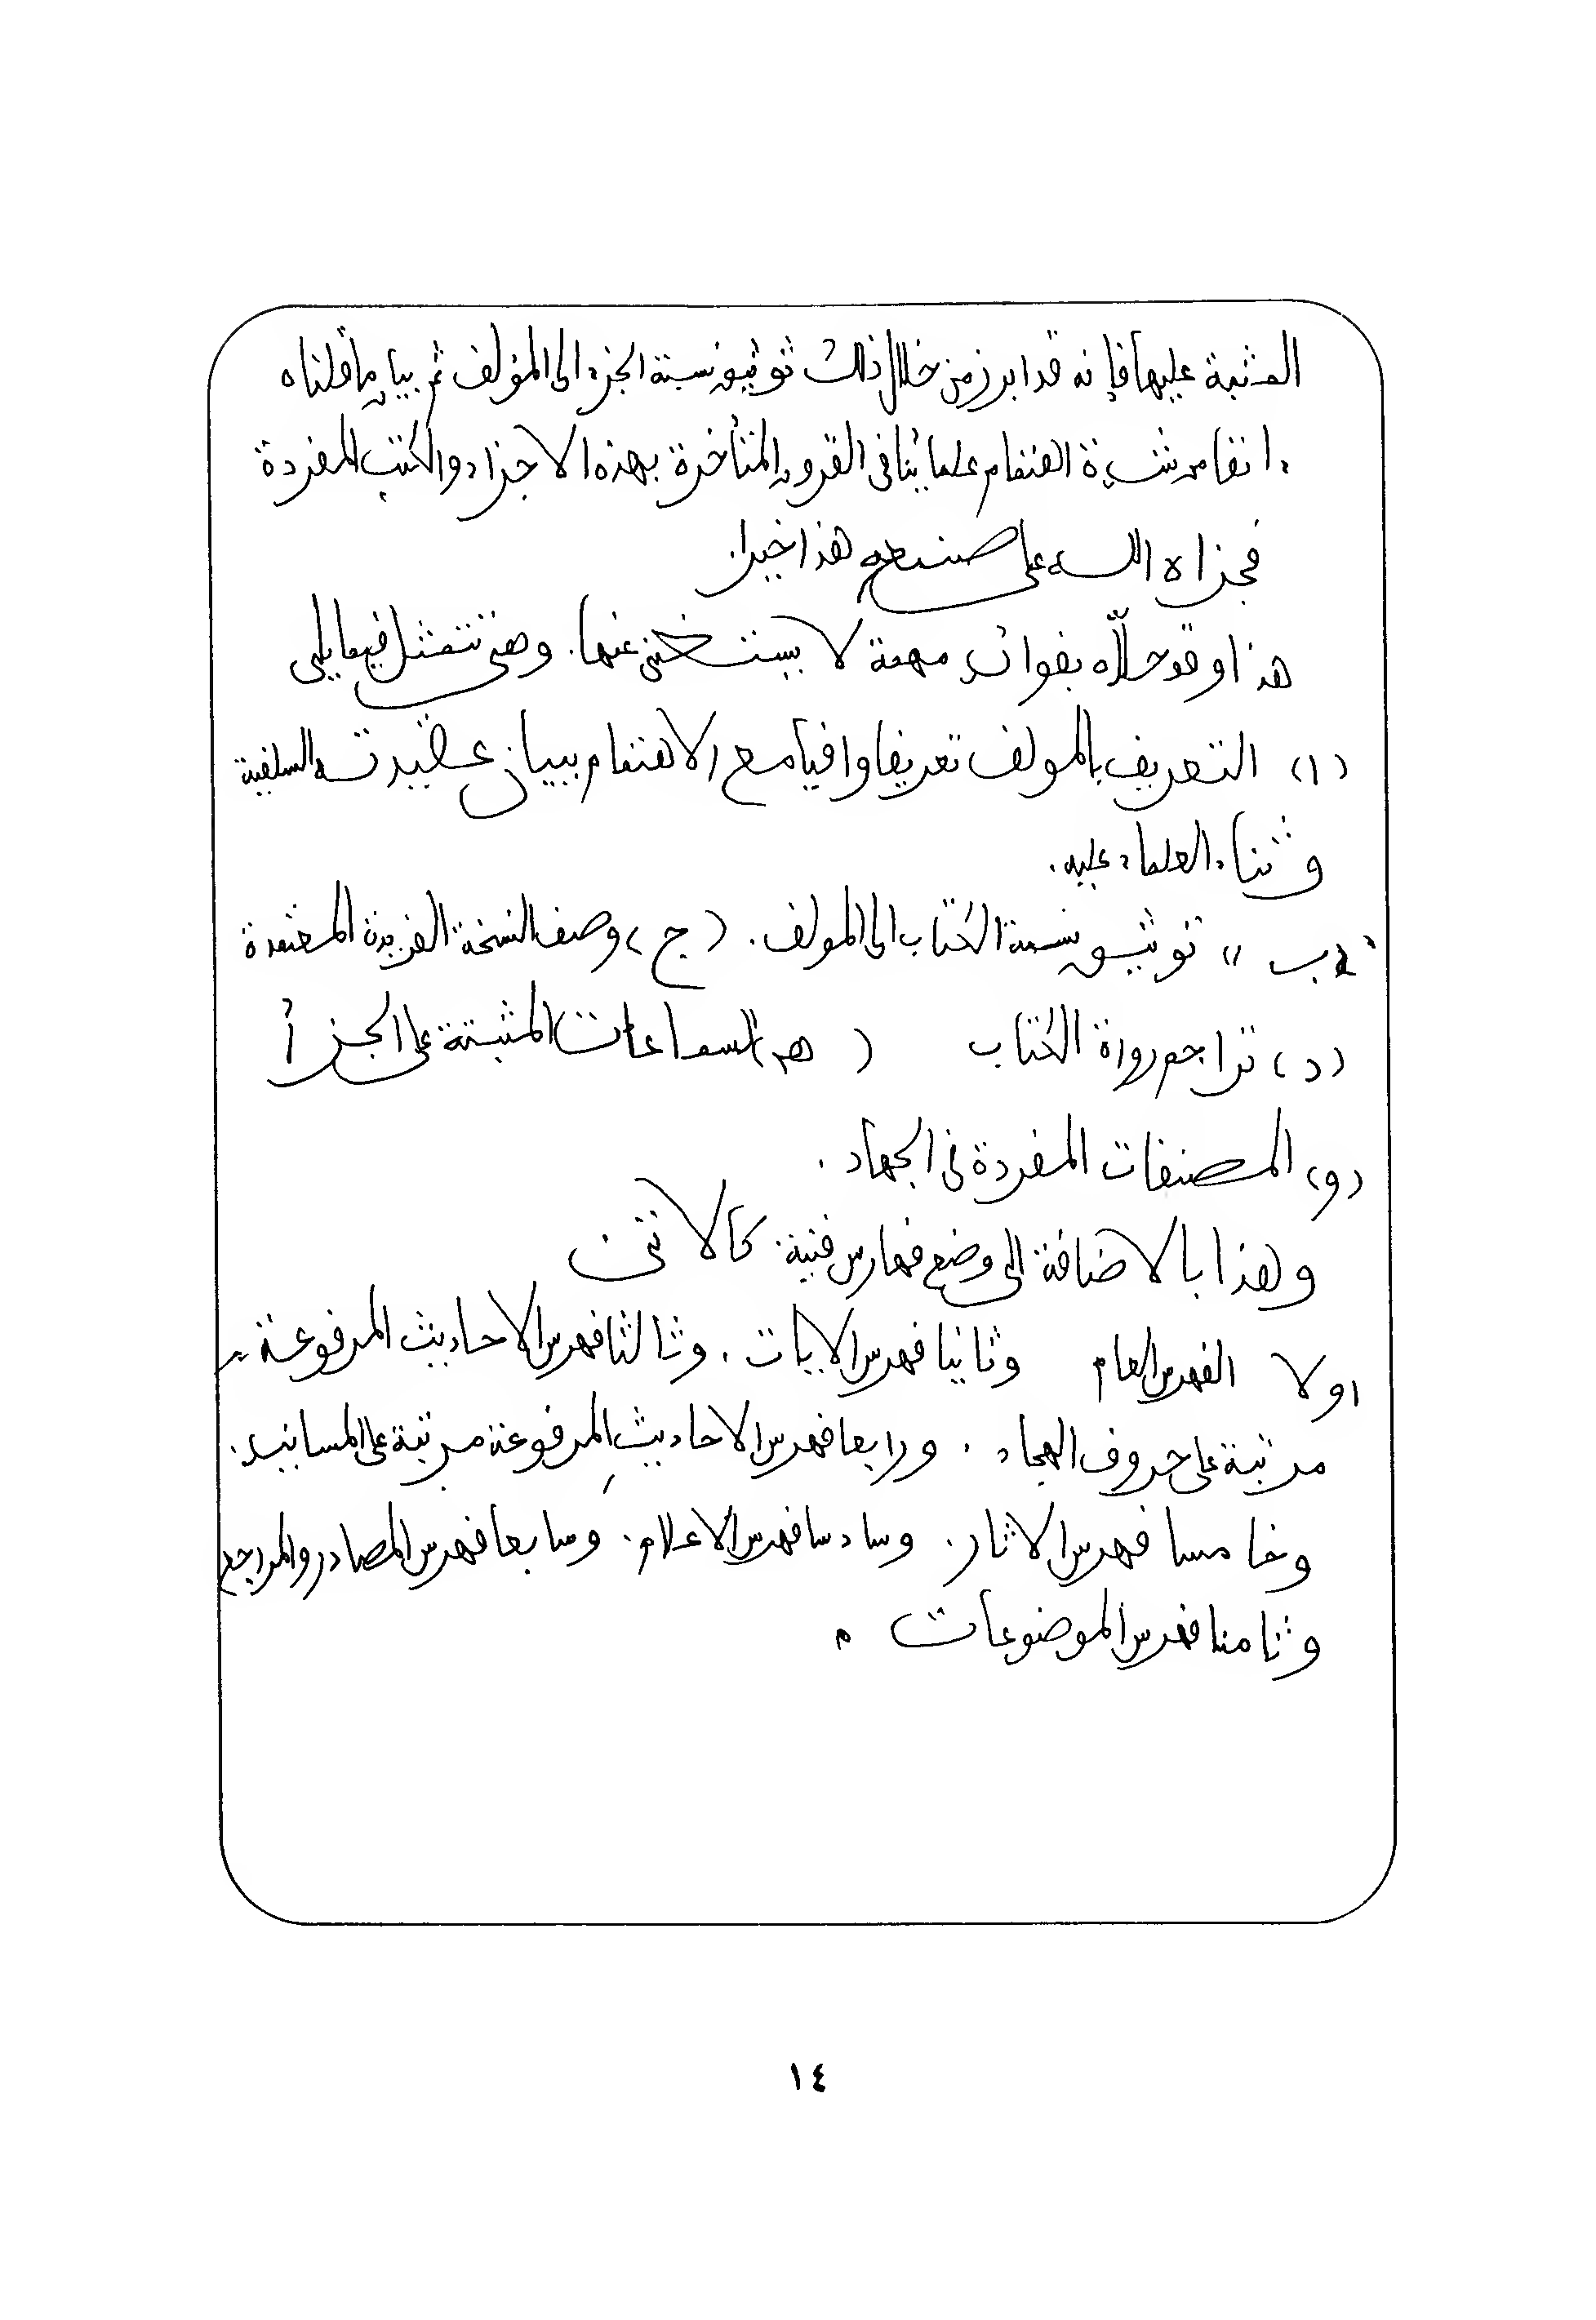 المثبة عليها فإنه قد ابرز من خلال ذلك توثيق نسبة الجزء الى المؤلف ثم بيان ما قلناه
انفا من شدة اهتمام علمائنا في القرون المتأخرة بهذه الاجزاء والكتب المفردة
فجزاه الله على صنيعه هذا خيرا.
هذا وقد حلاّه بفوائد مهمة لا يستغنى عنها. وهي تتمثل فيما يلي
(ا) التعريف بالمولف تعريفا وافيا مع الاهتمام ببيان عقيدته السلفية
وثناء العلماء عليه.
(ب) توثيق نسبة الكتاب الى المولف. (ج) وصف النسخة الفريدة المعتمدة
(د) تراجم رواة الكتاب (هـ) السماعات المثبتة على الجزأ
(و) المصنفات المفردة في الجهاد.
وهذا بالاضافة الى وضع فهارس فنية كالاتى
اولا الفهرس العام وثانيا فهرس الايات. وثالثا فهرس الاحاديث المرفوعة
مرتبة على حروف الهجاء. ورابعا فهرس الاحاديث المرفوعة مرتبة على المسانيد.
وخامسا فهرس الاثار. وسادسا فهرس الاعلام. وسابعا فهرس المصادر والمراجع
وثامنا فهرس الموضوعات
١٤